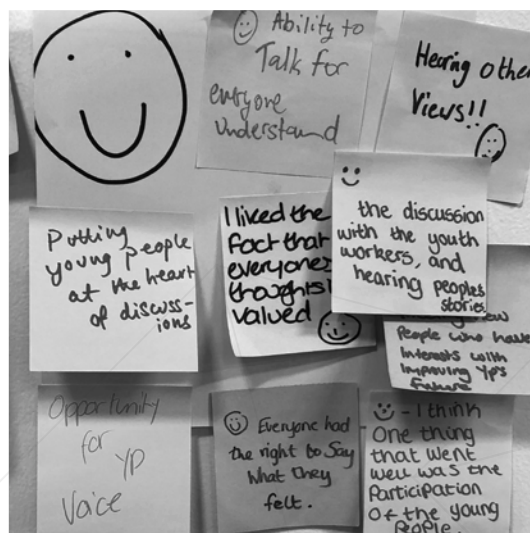 Ability to
Talk for
everyone
understand
Hearing other
Views!!
Putting
young people
at the heart
of discuss-
ions
I liked the
fact that
everyones
thoughts
valued
the discussion
with the youth
workers, and
hearing peoples
stories.
People who have
Interests with
Improving Yp's
Future
Opportunity
for
YP
Voice
Everyone had
the right to Say
What they
felt.
- I think
One thing
that went
well was the
Participation
Of the young
People.